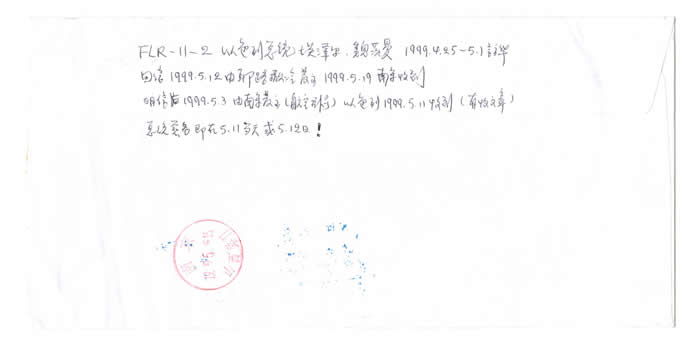 FLR-11-2 以色列总统埃泽尔·魏茨曼 1999.4.25-5.1访华
回信1999.5.12由耶路撒冷发出 1999.5.19南京收到
明信片1999.5.3由南京发出(航空) 以色列1999.5.11收到(有收文章)
总统签名即在5.11当天或5.12日!